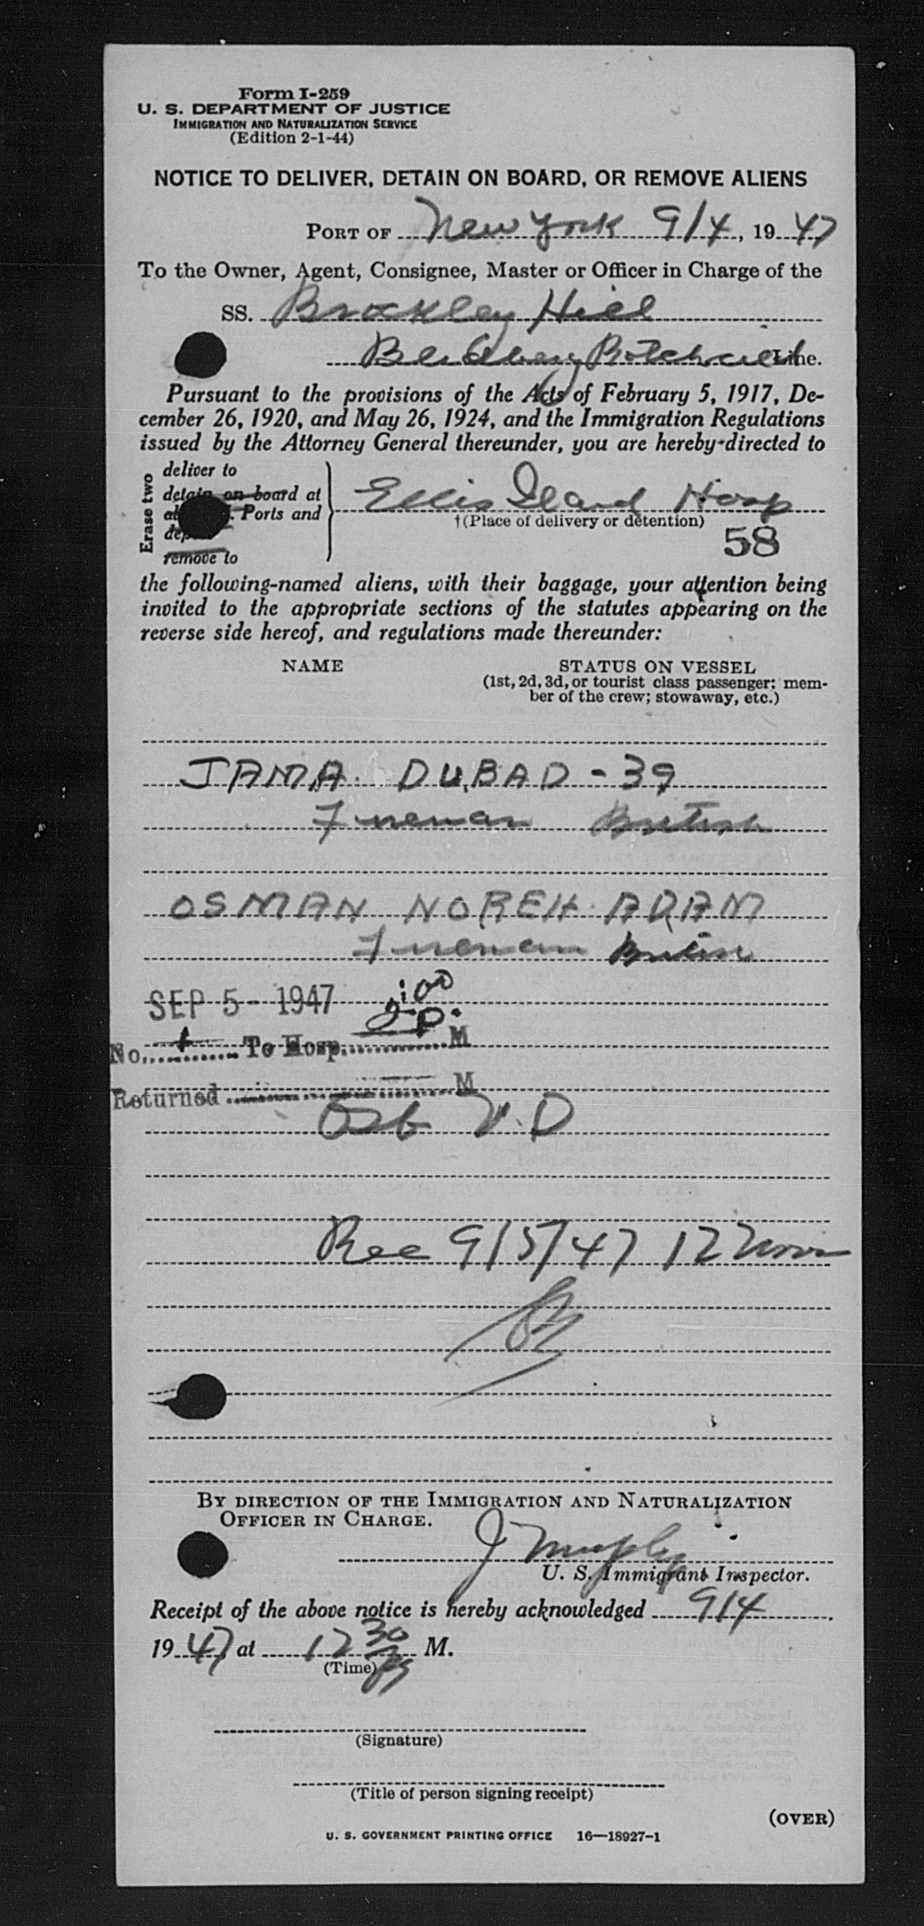 Form I-259
U. S. DEPARTMENT OF JUSTICE
IMMIGRATION AND NATURALIZATION SERVICE
(Edition 2-1-44)
NOTICE TO DELIVER, DETAIN ON BOARD, OR REMOVE ALIENS
PORT OF New York 9/4, 1947
To the Owner, Agent, Consignee, Master or Officer in Charge of the
SS. Brockley Hill
Line.
Pursuant to the provisions of the Acts of February 5, 1917, De-
cember 26, 1920, and May 26, 1924, and the Immigration Regulations
issued by the Attorney General thereunder, you are hereby directed to
Erase two
deliver to
detain on board at
Ports and
remove to
Ellis Island Hosp
†(Place of delivery or detention)
58
the following-named aliens, with their baggage, your attention being
invited to the appropriate sections of the statutes appearing on the
reverse side hereof, and regulations made thereunder:
NAME STATUS ON VESSEL
(1st, 2d, 3d, or tourist class passenger; mem-
ber of the crew; stowaway, etc.)
JAMA DUBAD - 39
Fireman British
OSMAN NOREH ADAM
Fireman British
SEP 5 - 1947 2:00
No. 1 To Hosp. P. M
Returned M
V.D
Rec 9/5/47 12 Noon
BY DIRECTION OF THE IMMIGRATION AND NATURALIZATION
OFFICER IN CHARGE.
J Murphy
U. S. Immigrant Inspector.
Receipt of the above notice is hereby acknowledged 9/4
1947 at 12 30 M.
(Time)
(Signature)
(Title of person signing receipt)
(OVER)
U. S. GOVERNMENT PRINTING OFFICE 16—18927-1